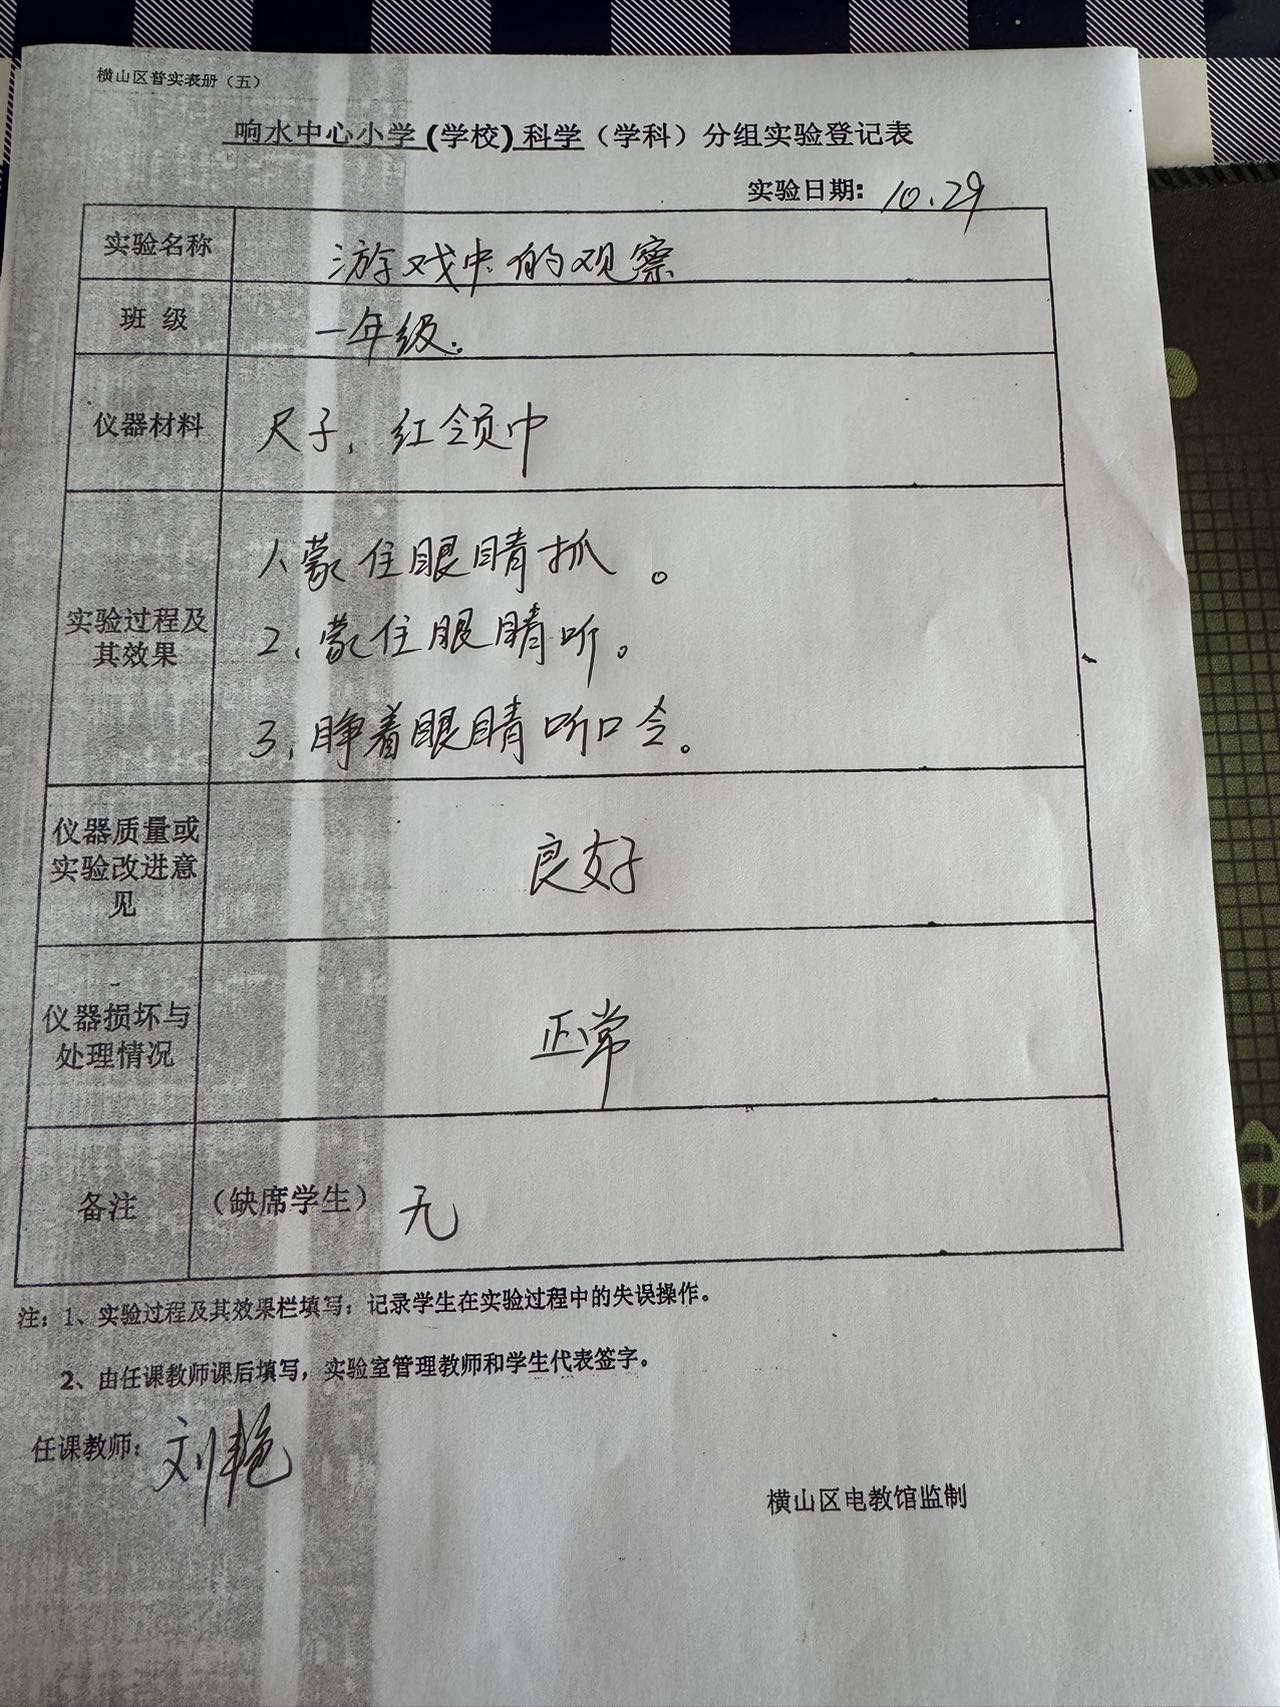 横山区普实表册（五）
响水中心小学(学校)科学（学科）分组实验登记表
实验日期：10.29
实验名称 游戏中的观察
班 级 一年级.
仪器材料 尺子、红领巾
实验过程及
其效果
1、蒙住眼睛抓 。
2、蒙住眼睛听。
3、睁着眼睛听口令。
仪器质量或
实验改进意
见
良好
仪器损坏与
处理情况
正常
备注 （缺席学生）无
注：1、实验过程及其效果栏填写：记录学生在实验过程中的失误操作。
2、由任课教师课后填写，实验室管理教师和学生代表签字。
任课教师：刘艳
横山区电教馆监制